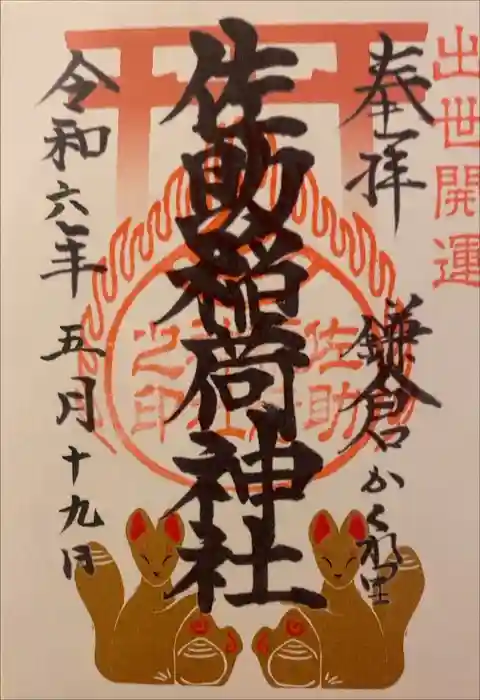 出世開運
奉拝
鎌倉かくれ里
佐助稲荷神社
令和六年 五月十九日
佐助
之印